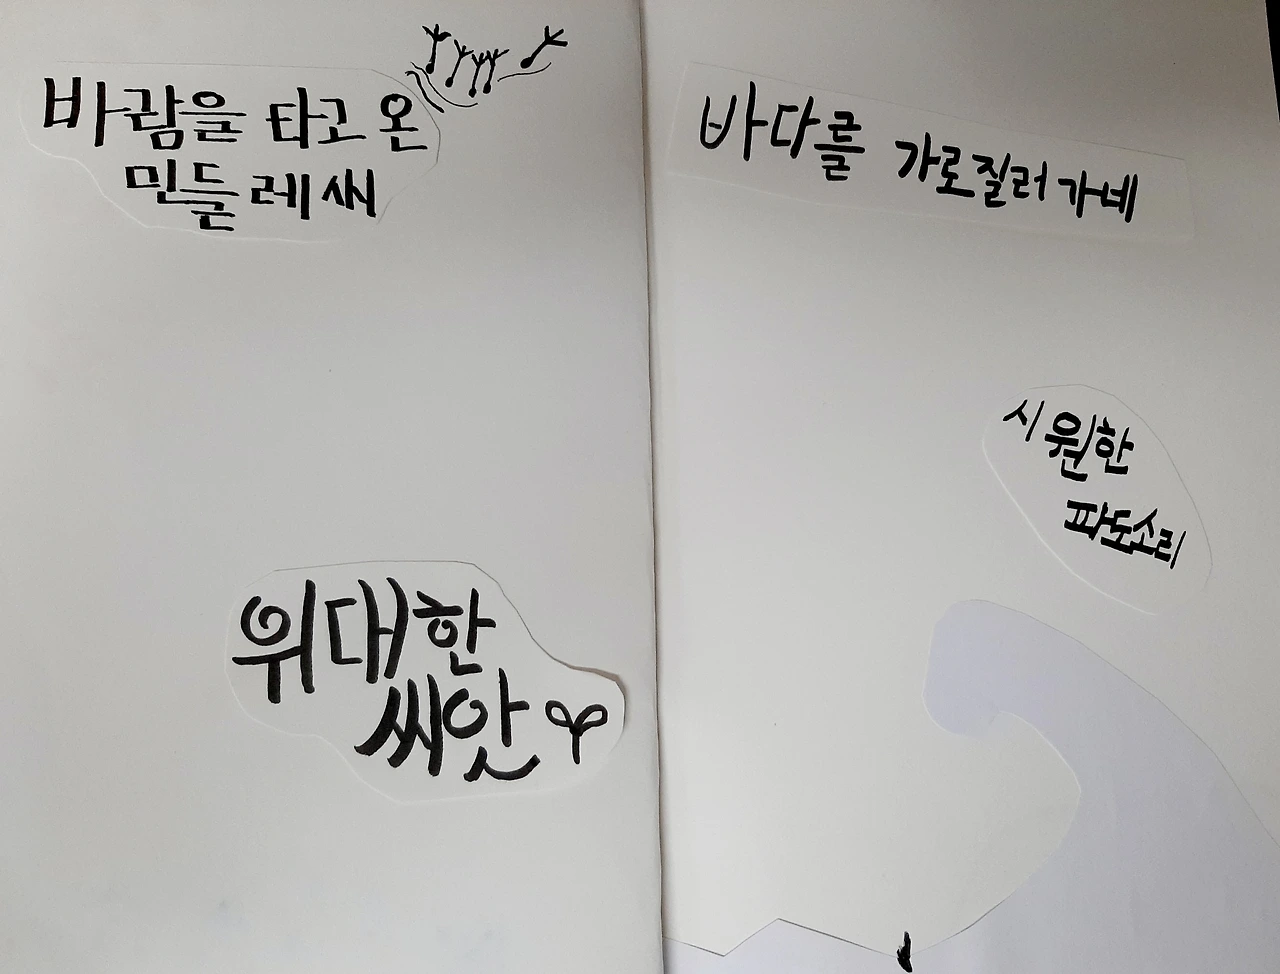 바람을 타고 온
민들레씨
위대한
씨앗
바다를 가로질러 가네
시원한
파도소리